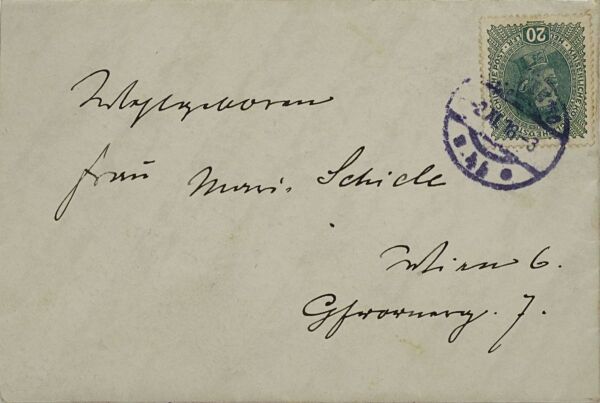 Wohlgeboren
Frau Marie Schiele
Wien 6.
Gfrornerg. 7.
20
2.XI.18-3